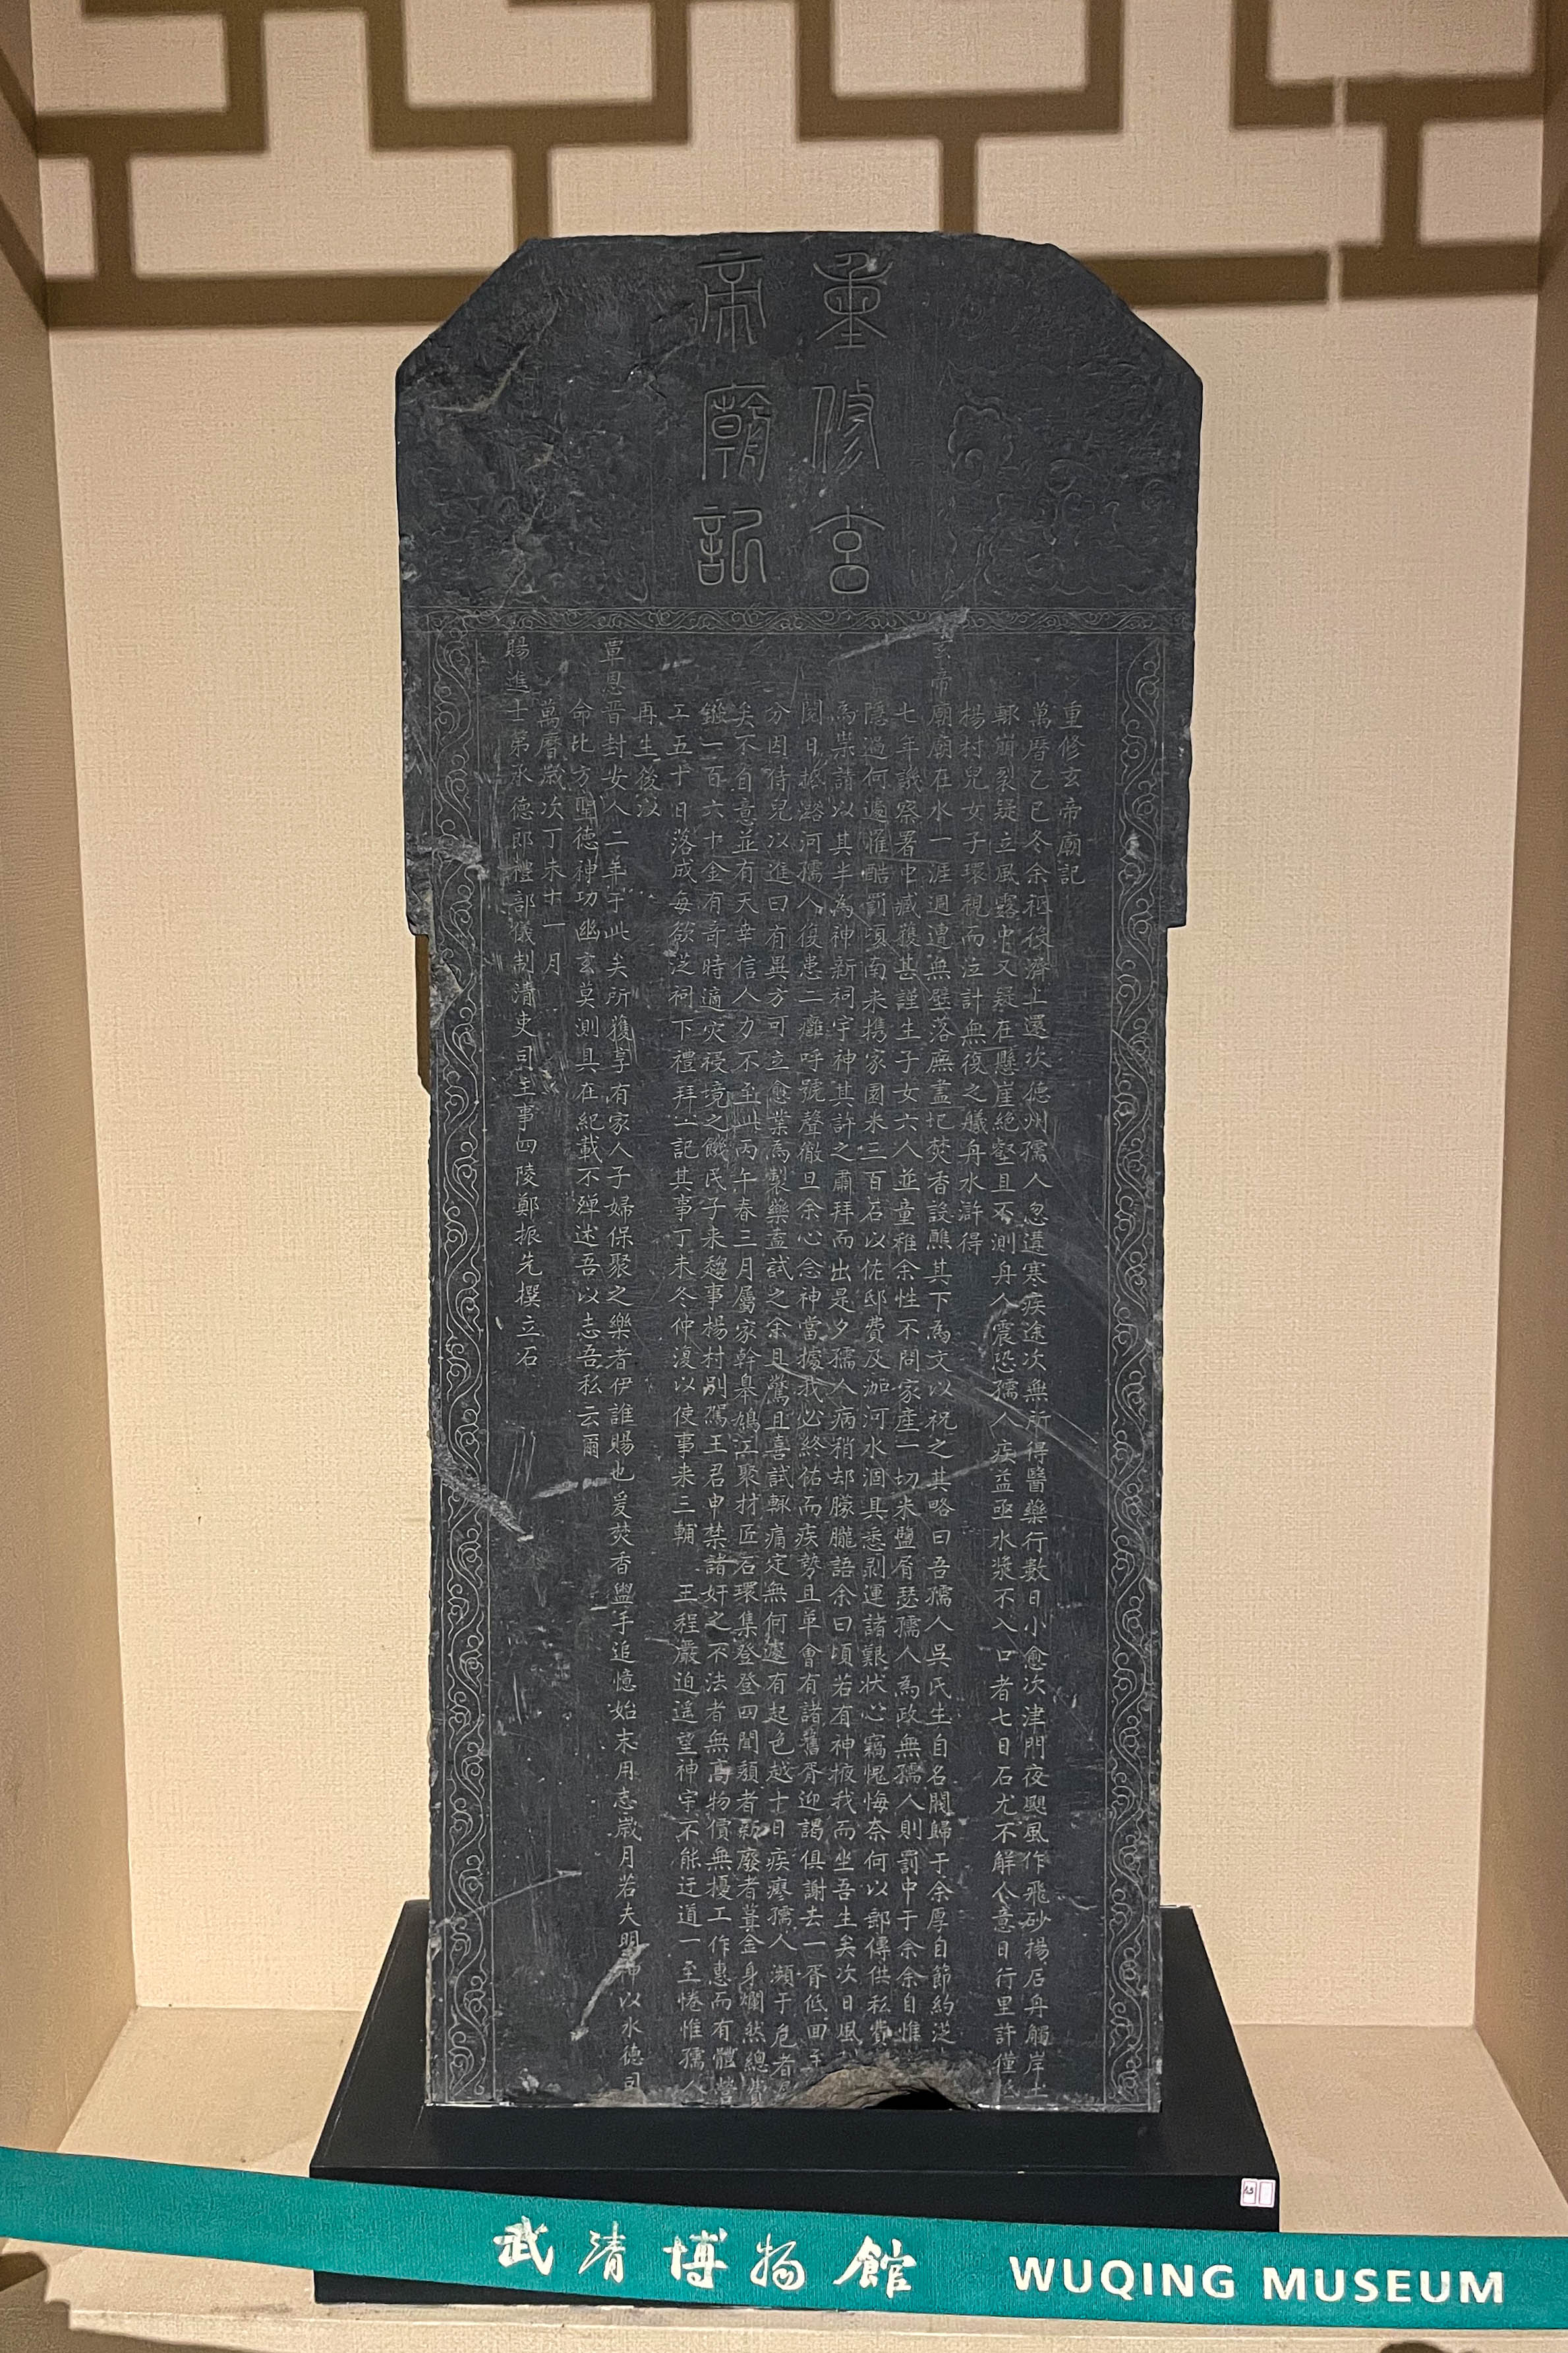 重修玄
帝廟記
重修玄帝廟記
萬曆乙巳冬余祗役濟上還次德州孺人忽遘寒疾途次無所得醫藥行數日小愈次津門夜颶風作飛砂揚石舟觸岸土
輒崩裂疑立風露中又疑在懸崖絕壑且不測舟人震恐孺人疾益亟水漿不入口者七日石尤不解人意日行里許僅
楊村兒女子環視而泣計無復之艤舟水滸得
玄帝廟廟在水一涯週遭無壁落廡盡圮焚香設醮其下為文以祝之其略曰吾孺人吳氏生自名閥歸于余厚自節約
七年議察署中臧獲甚謹生子女六人並童稚余性不問家產一切米鹽屑瑟孺人為政無孺人則罰中于余余自惟
隱過何遽惟酷罰頃南來携家園米三百石以佐邸費及泇河水涸具悉剥運諸艱狀心竊愧悔奈何以郵傳供私費
為祟請以其半為神新祠宇神其許之肅拜而出是夕孺人病稍却朦朧語余曰頃若有神掖我而坐吾生矣次日風
閱日抵潞河孺人復患二癰呼號聲徹旦余心念神當據我必終佑而疾勢且革會有諸舊胥迎謁俱謝去一胥低回
分因侍兒以進曰有異方可立愈業為製藥盍試之余且驚且喜試輒痛定無何遽有起色越十日疾瘳孺人瀕于危者
矣不自意並有天幸信人力不至此丙午春三月屬家幹舉鳩工聚材匠石環集登登四聞頽者新廢者葺金身爛然總費
鏹一百六十金有奇時適灾祲境之饑民子來趨事楊村別駕王君申禁諸奸之不法者無高物價無擾工作惠而有體
工五十日落成每欲泛祠下禮拜一記其事丁未冬仲復以使事来三輔 王程嚴迫遥望神宇不能迂道一至惓惟孺人
再生後以
覃恩晋封安人二年于此矣所獲享有家人子婦保聚之樂者伊誰賜也爰焚香盥手追憶始末用志歲月若夫明神以水德司
命比方聖德神功幽玄莫測具在紀載不殫述吾以志吾私云爾
萬曆歲次丁未十一月
賜進士第承德郎禮部儀制清吏司主事四陵鄭振先撰立石
武清博物館 WUQING MUSEUM